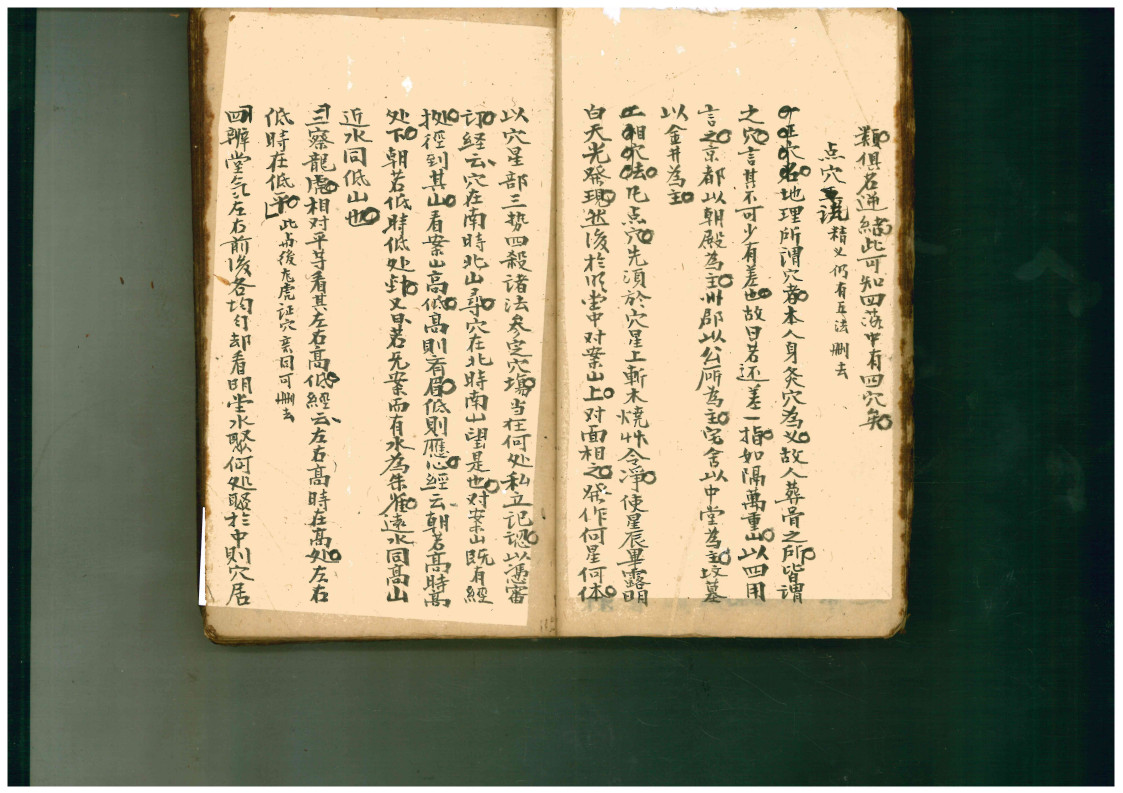 類俱名逆結此可知四落中有四穴矣
点穴要说精义仍有五法删去
一正穴名地理所謂穴者本人身灸穴為义故人葬骨之所皆謂
之穴言其不可少有差也故曰若还差一指如隔萬重山以四用
言之京都以朝殿為主州郡以公所為主宅舍以中堂為主坟墓
以金井為主
二相穴法凡点穴先須於穴星上斬木燒艸令淨使星辰畢露明
白天光發現然後於明堂中对案山上对面相之發作何星何体
以穴星部三势四殺諸法参定穴塲当在何处私立記認以憑審
訂經云穴在南時北山尋穴在北時南山望是也对案山既有經
揔徑到其山看案山高低高則齊眉低則應心經云朝若高時高
处下朝若低時低处針又曰若无案而有水為朱雀遠水同高山
近水同低山也
三察龍虎相对平等看其左右高低經云左右高時在高处左右
低時在低平此与後龙虎证穴意同可删去
四辨堂气左右前後各均匀却看明堂水聚何处聚於中則穴居